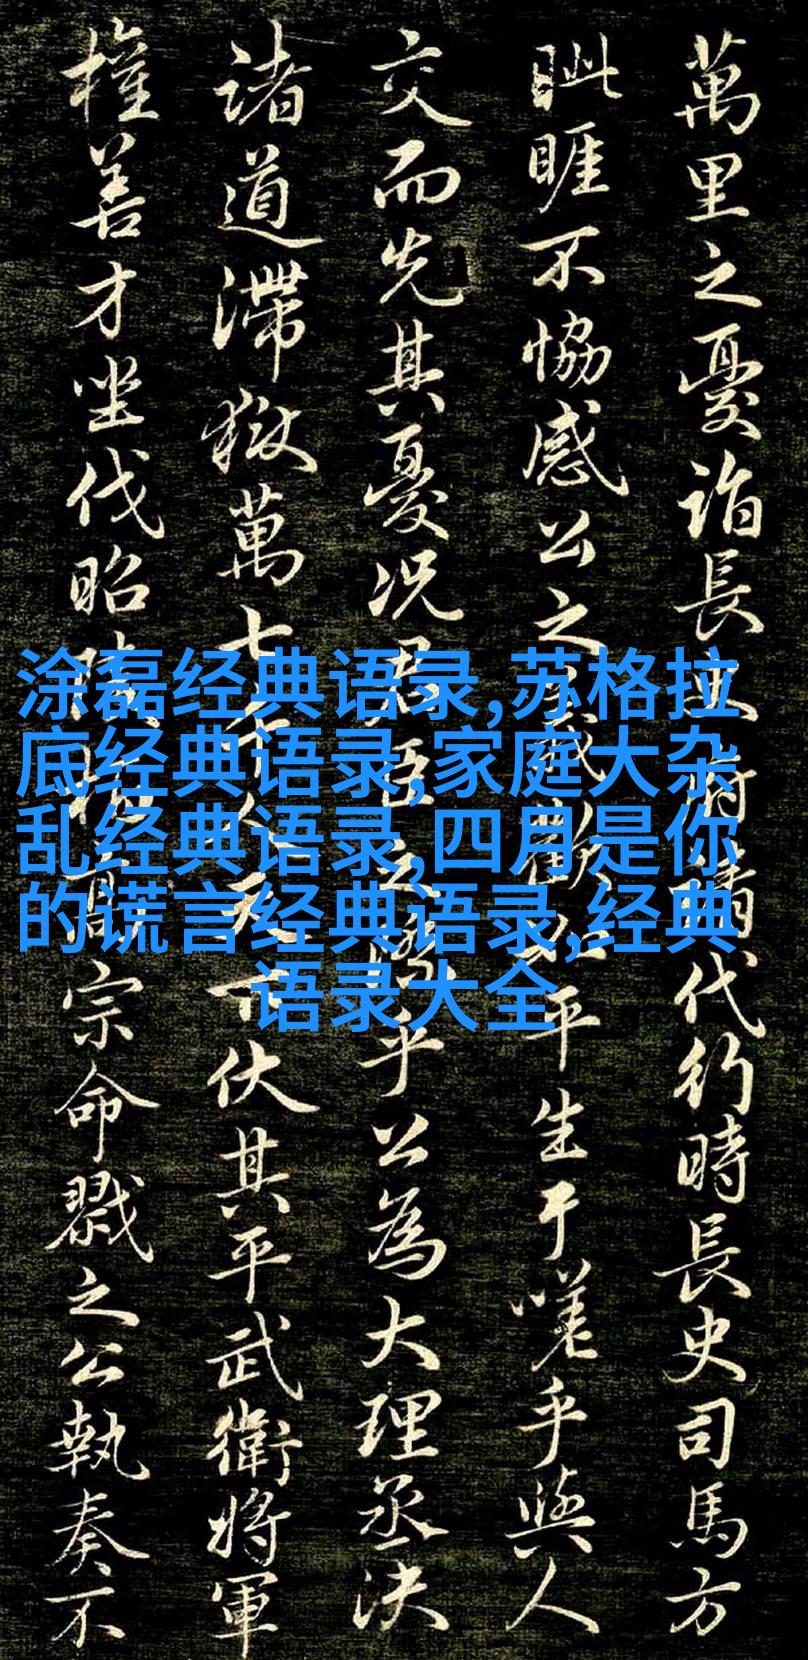 萬里之憂詣長史府請代行時長史司馬方
眦睚不協感公之義歡如平生于嗟乎與人
交而先其憂况君臣之際乎公為大理丞決
諸道滯獄萬七千人天下伏其平武衛將軍
權善才坐伐昭陵柏高宗命戮之公執奏不
涂磊经典语录,苏格拉
底经典语录,家庭大杂
乱经典语录,四月是你
的谎言经典语录,经典
语录大全